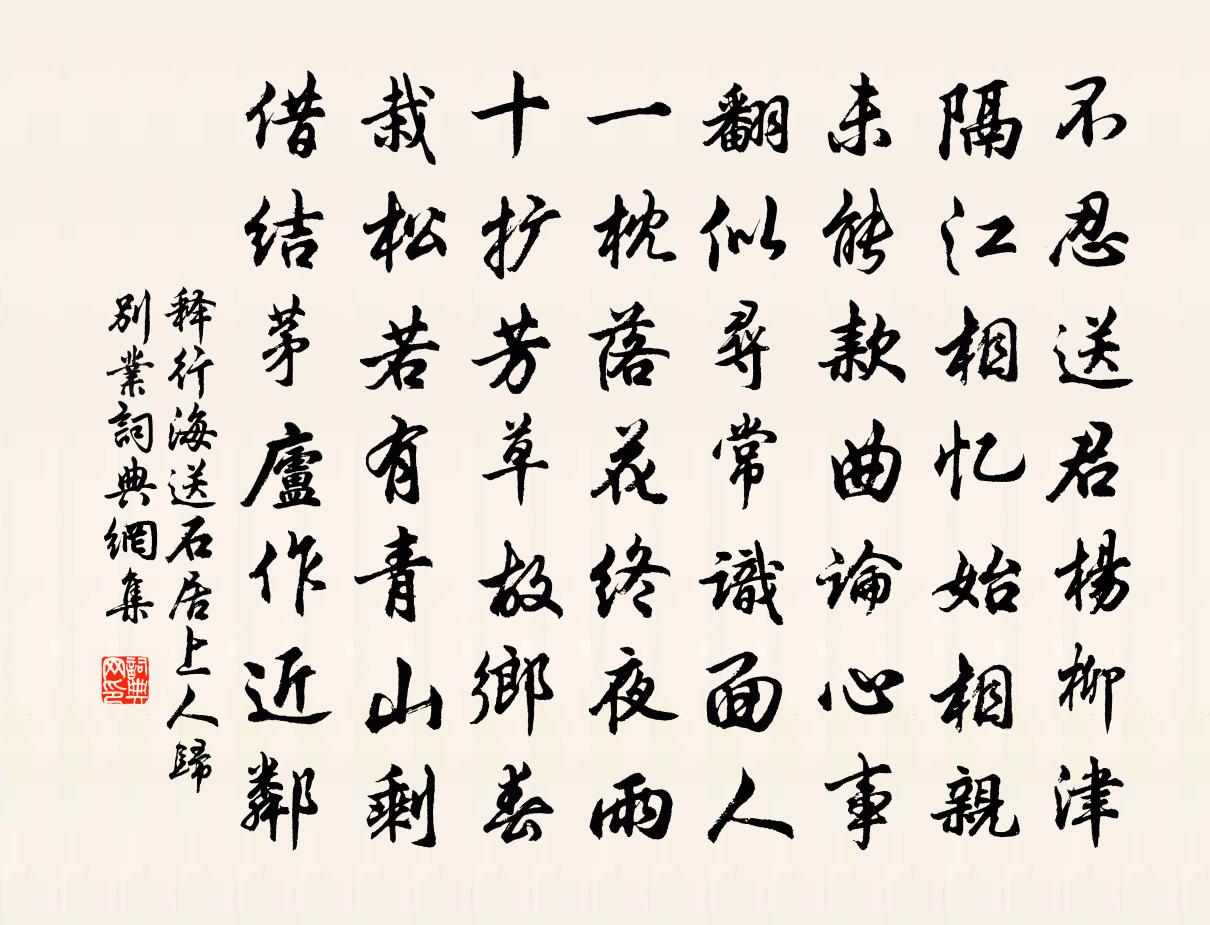 不忍送君楊柳津
隔江相忆始相親
未能款曲論心事
翻似尋常識面人
一枕落花终夜雨
十扩芳草故鄉春
栽松若有青山剩
借结茅廬作近鄰
释行海送石居上人歸
别業詞典網集
詞典网印